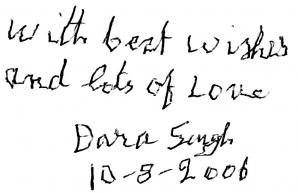 With best wishes
and lots of Love
Dara Singh
10-8-2006